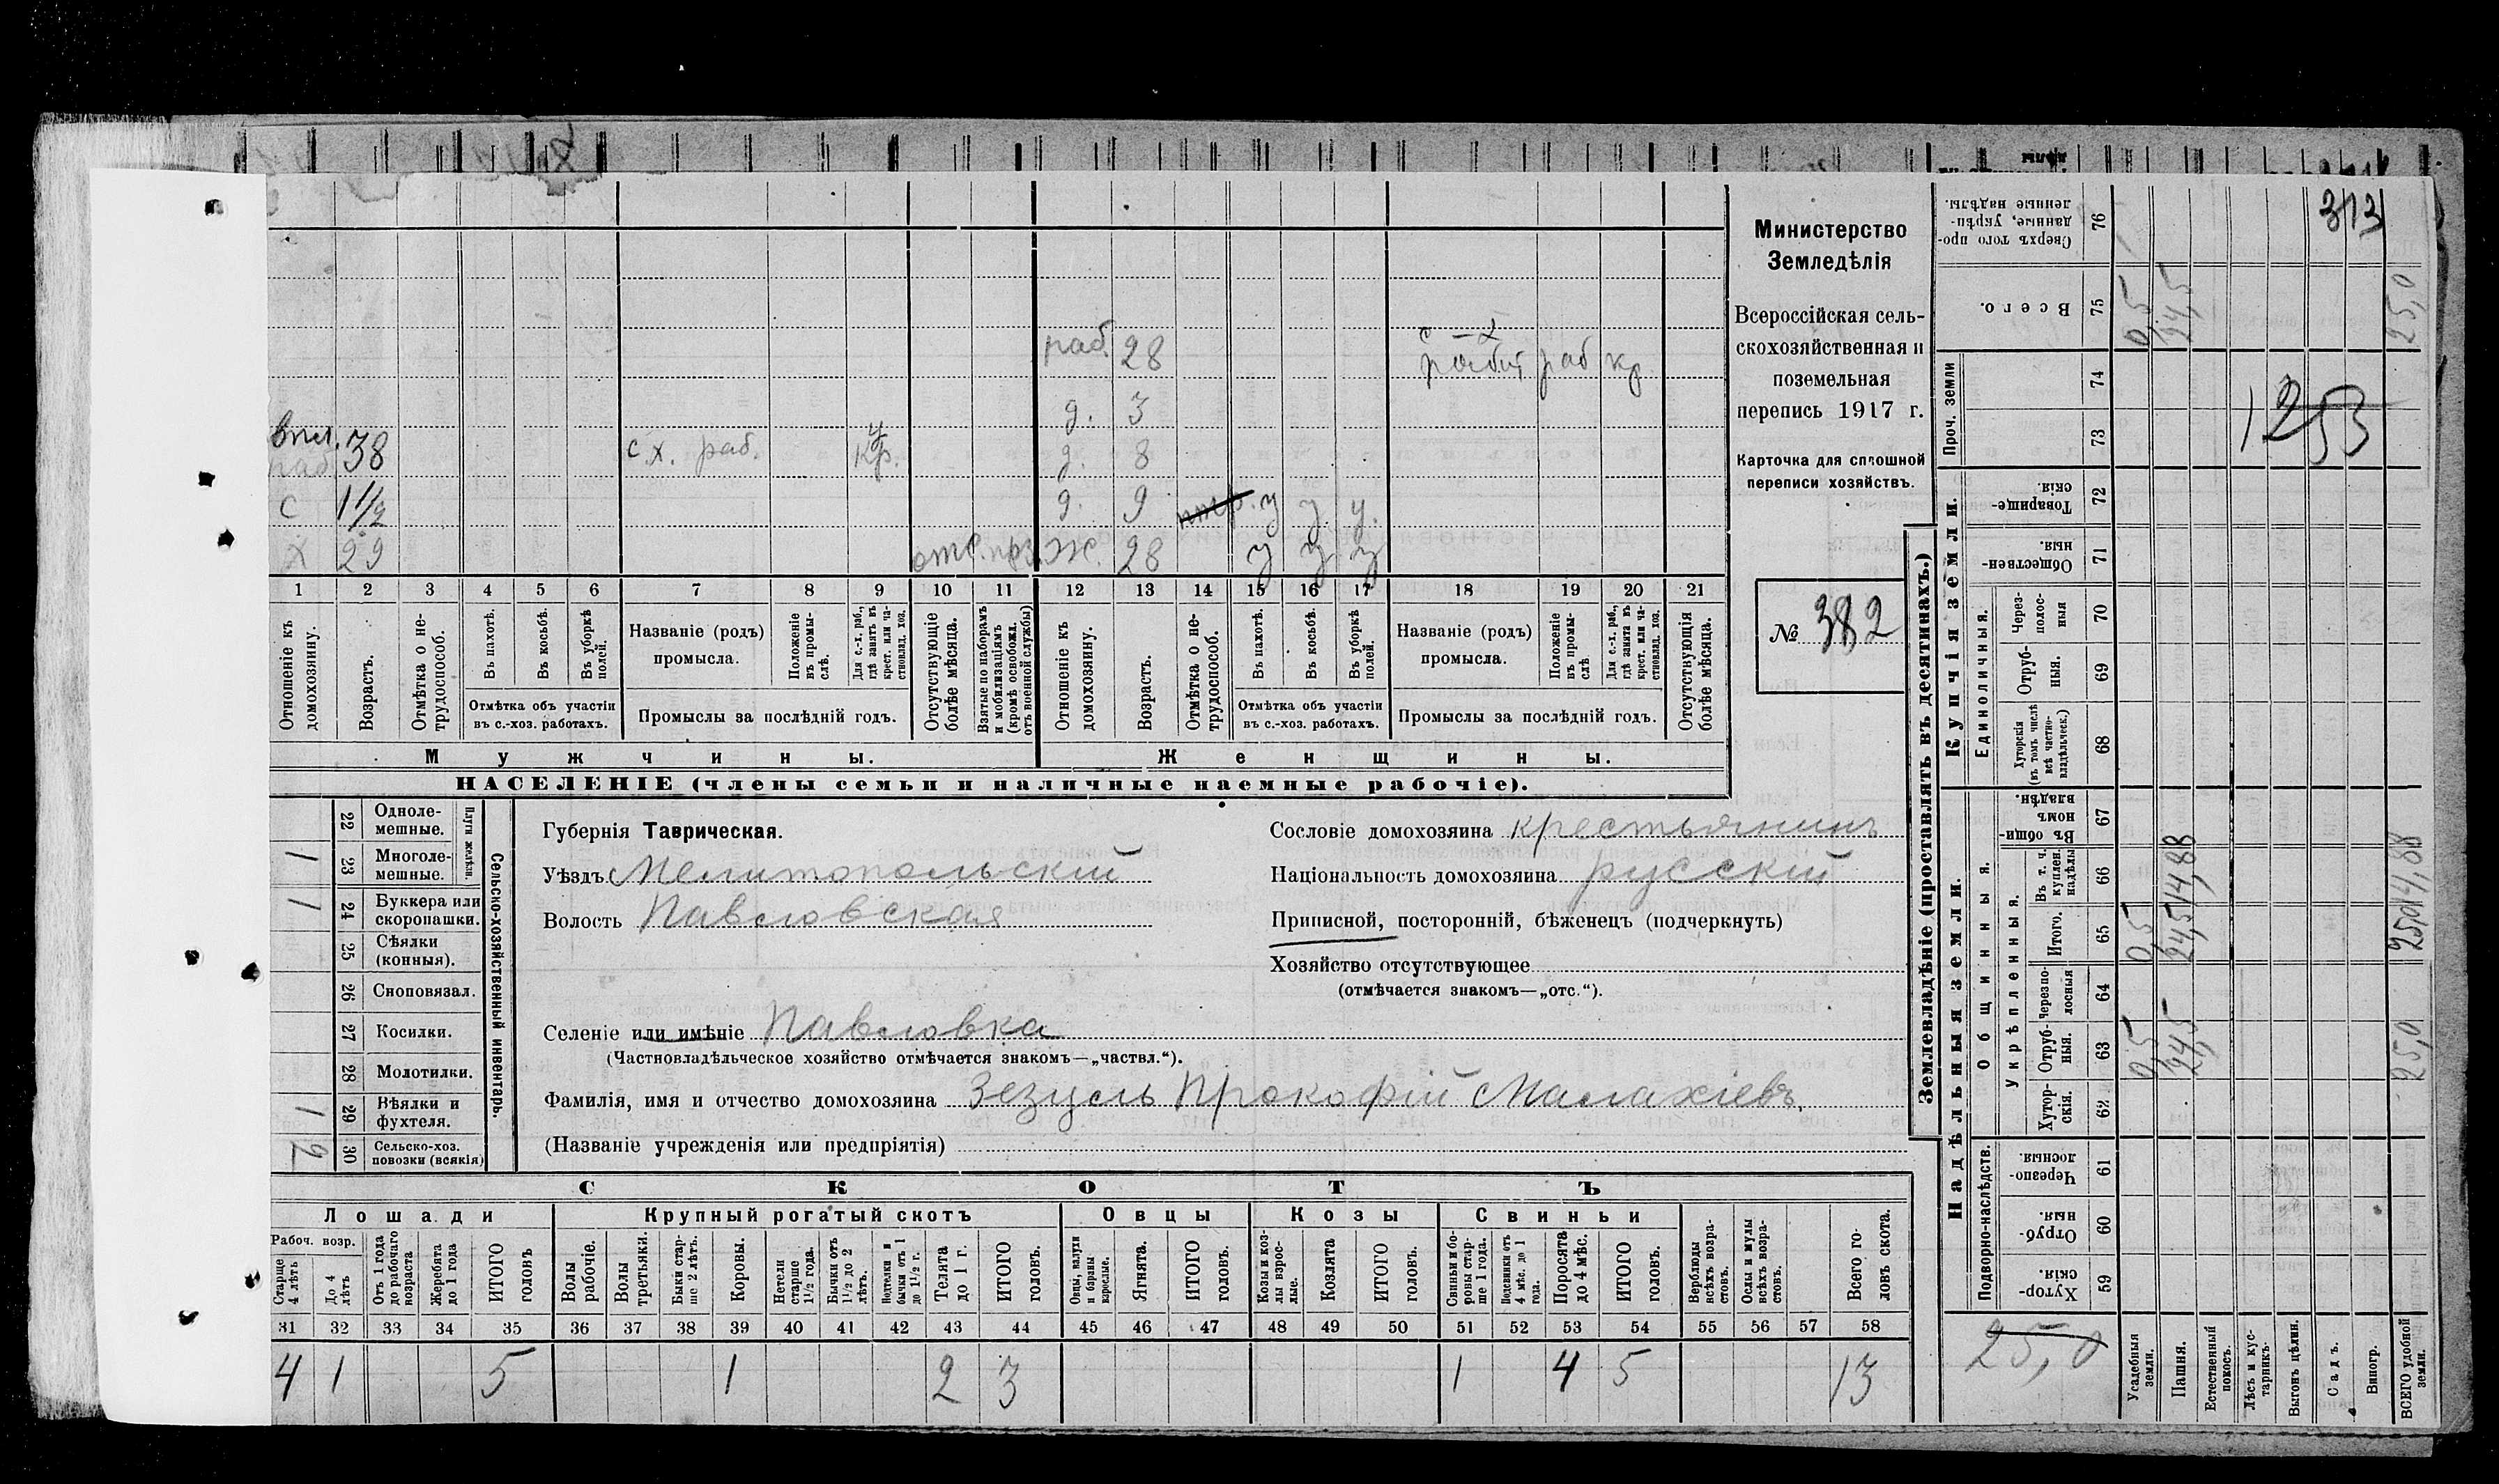 313
Министерство
Земледѣлія
Всероссійская сель-
скохозяйственная и
поземельная
перепись 1917 г.
Карточка для сплошной
переписи хозяйствъ.
№ 382
1253
раб. 28
раб кр
д. 3
38 с.х. раб. кр. д. 8
с 1 1/2 д. 9 у у у.
х 29 отс. Ж. 28 у у у
1 2 3 4 5 6 7 8 9 10 11 12 13 14 15 16 17 18 19 20 21
Отношеніе къ домохозяину.
Возрастъ.
Отмѣтка о не-трудоспособ.
Въ пахотѣ.
Въ косьбѣ.
Въ уборкѣ полей.
Отмѣтка объ участіи
въ с.-хоз. работахъ.
Названіе (родъ)
промысла.
Положеніе въ промы-слѣ.
Для с.-х. раб., гдѣ занятъ въ крест. или ча-стновлад. хоз.
Промыслы за послѣдній годъ.
Отсутствующіе болѣе мѣсяца.
Взятые по наборамъ и мобилизаціямъ (кромѣ освобожд. отъ военной службы)
Отношеніе къ домохозяину.
Возрастъ.
Отмѣтка о не-трудоспособ.
Въ пахотѣ.
Въ косьбѣ.
Въ уборкѣ полей.
Отмѣтка объ участіи
въ с.-хоз. работахъ.
Названіе (родъ)
промысла.
Положеніе въ промы-слѣ
Для с.-х. раб., гдѣ занята въ крест. или ча-стновлад. хоз.
Промыслы за послѣдній годъ.
Отсутствующія болѣе мѣсяца.
Мужчины. Женщины.
НАСЕЛЕНІЕ (члены семьи и наличные наемные рабочіе).
Сельско-хозяйственный инвентарь.
Плуги желѣзн.
22 Одноле-мешные.
1 23 Многоле-мешные.
1 24 Буккера или скоропашки.
25 Сѣялки (конныя).
26 Сноповязал.
27 Косилки.
28 Молотилки.
1 29 Вѣялки и фухтеля.
2 30 Сельско-хоз. повозки (всякія)
Губернія Таврическая.
Уѣздъ Мелитопольскій
Волость Павловская
Селеніе или имѣніе Павловка
(Частновладѣльческое хозяйство отмѣчается знакомъ—„частвл.“).
Фамилія, имя и отчество домохозяина Зезуль Прокофій Малахіевъ.
(Названіе учрежденія или предпріятія)
Сословіе домохозяина крестьянинъ
Національность домохозяина русскій
Приписной, посторонній, бѣженецъ (подчеркнуть)
Хозяйство отсутствующее
(отмѣчается знакомъ—„отс.“).
СКОТЪ
Лошади Крупный рогатый скотъ Овцы Козы Свиньи
Рабоч. возр.
Старше 4 лѣтъ
До 4 лѣтъ
Отъ 1 года до рабочаго возраста
Жеребята до 1 года
ИТОГО головъ
Волы рабочіе.
Волы третьяки.
Быки стар-ше 2 лѣтъ.
Коровы.
Нетели старше 1½ года.
Бычки отъ 1½ до 2 лѣтъ.
Подтелки и бычки отъ 1 до 1½ г.
Телята до 1 г.
ИТОГО головъ.
Овцы, валухи и бараны взрослые.
Ягнята.
ИТОГО головъ.
Козы и коз-лы взрос-лые.
Козлята
ИТОГО головъ.
Свиньи и бо-ровы стар-ше 1 года.
Подсвинки отъ 4 мѣс. до 1 года.
Поросята до 4 мѣс.
ИТОГО головъ.
Верблюды всѣхъ возра-стовъ.
Ослы и мулы всѣхъ возра-стовъ.
Всего го-ловъ скота.
31 32 33 34 35 36 37 38 39 40 41 42 43 44 45 46 47 48 49 50 51 52 53 54 55 56 57 58
4 1 5 1 2 3 1 4 5 13
Землевладѣніе (проставлять въ десятинахъ.)
Надѣльныя земли. Купчія земли.
Подворно-наслѣдств.
Общинныя.
Укрѣпленныя.
Единоличныя.
Проч. земли
59 Хутор-скія
60 Отруб-ныя
61 Черезпо-лосныя.
62 Хутор-скія.
63 Отруб-ныя. 0,5 24,5 25,0
64 Черезпо-лосныя
65 Итого. 0,5 24,5 25,0
66 Въ т. ч. куплен. надѣлы 14,88 14,88
67 Въ общи-номъ владѣн.
68 Хуторскія (въ томъ числѣ всѣ частно-владѣльческ.)
69 Отруб-ныя.
70 Через-полос-ныя
71 Обществен-ныя.
72 Товарище-скія.
73
74
75 Всего. 0,5 24,5 25,0
76 Сверхъ того про-данные, укрѣп-ленные надѣлы.
25,0
Усадебныя земли.
Пашня.
Естественный покосъ.
Лѣсъ и кус-тарникъ.
Выгонъ цѣлин.
Садъ.
Виногр.
ВСЕГО удобной земли.